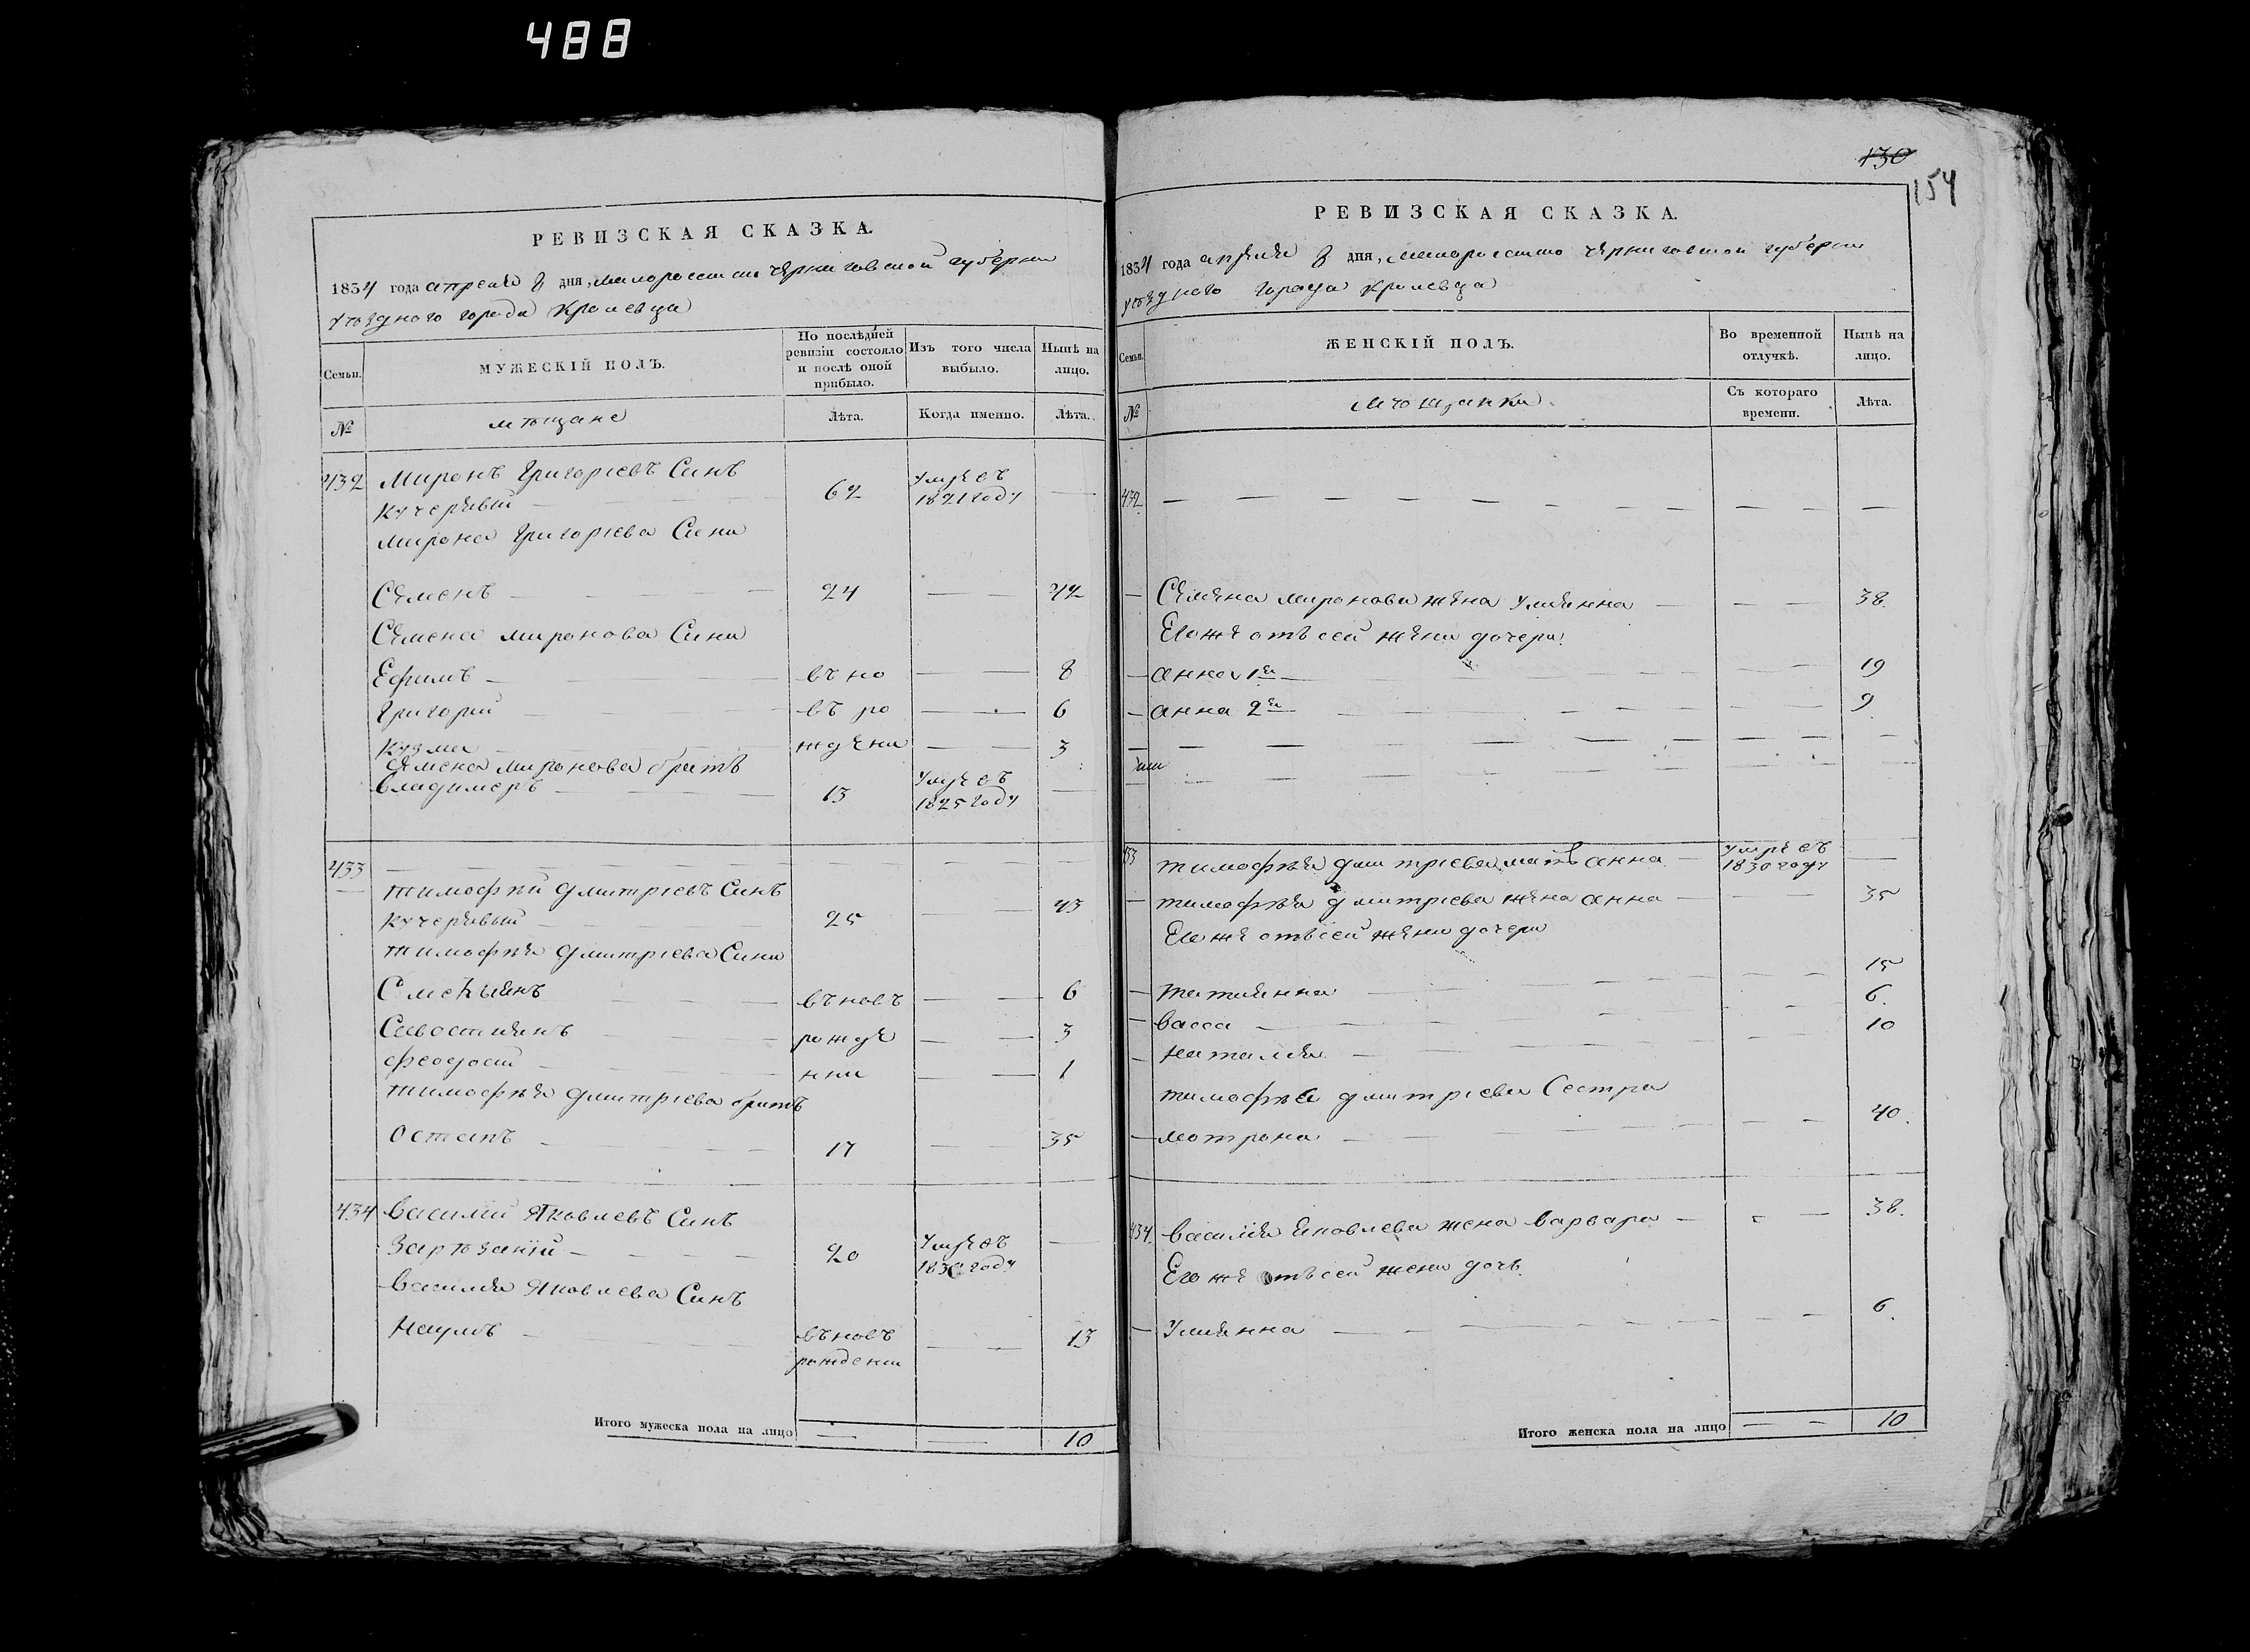 488
РЕВИЗСКАЯ СКАЗКА.
1834 года апреля 8 дня, малоросеиско черниговской губернии
уѣзднаго города Кролевца
Семьи.
МУЖЕСКІЙ ПОЛЪ.
По послѣдней ревизіи состояло и послѣ оной прибыло.
Изъ того числа выбыло.
Нынѣ на лицо.
№
мѣщане
Лѣта.
Когда именно.
Лѣта.
432 Миронъ Григоріевъ Синъ
Кучерявый 62 умре въ 1821 году
Мирона Григоріева Сини
Семенъ 24 42
Семена Миронова Сини
Ефимъ въ но 8
Григорий въ ро 6
Кузма ждени 3
Семена Миронова братъ
Владимеръ 13 умре въ 1825 году
433
Тимофѣй Дмитріевъ Синъ
Кучерявый 25 43
Тимофѣя Дмитріева Сини
въновъ 6
Савостиянъ рожде 3
Феодосий нии 1
Тимофѣя Дмитріева братъ
Остапъ 17 35
434 Василий Яковлевъ Синъ
20 умре въ году
Василия Яковлева Синъ
Наумъ въновъ рождении 13
Итого мужеска пола на лицо 10
130
154
РЕВИЗСКАЯ СКАЗКА.
1834 года апреля 8 дня, малоросеиско черниговской губернии
уѣзднаго города Кролевца
Семьи.
ЖЕНСКІЙ ПОЛЪ.
Во временной отлучкѣ.
Нынѣ на лицо.
№
мѣщанки
Съ котораго времени.
Лѣта.
432
Семена Миронова жена Улиянна 38.
Его же отъ сей жени дочери
Анна 1я 19
Анна 2я 9
433 Тимофѣя Дмитріева мать Анна умре въ 1830 году
Тимофѣя Дмитріева жена Анна 35
Его же отъ сей жени дочери
Татиянна 15
Васса 6.
Наталия 10
Тимофѣя Дмитріева Сестра
Мотрона 40.
434. Василия Яковлева жена Варвара 38.
Его же отъ сей жени дочь.
Улиянна 6.
Итого женска пола на лицо 10